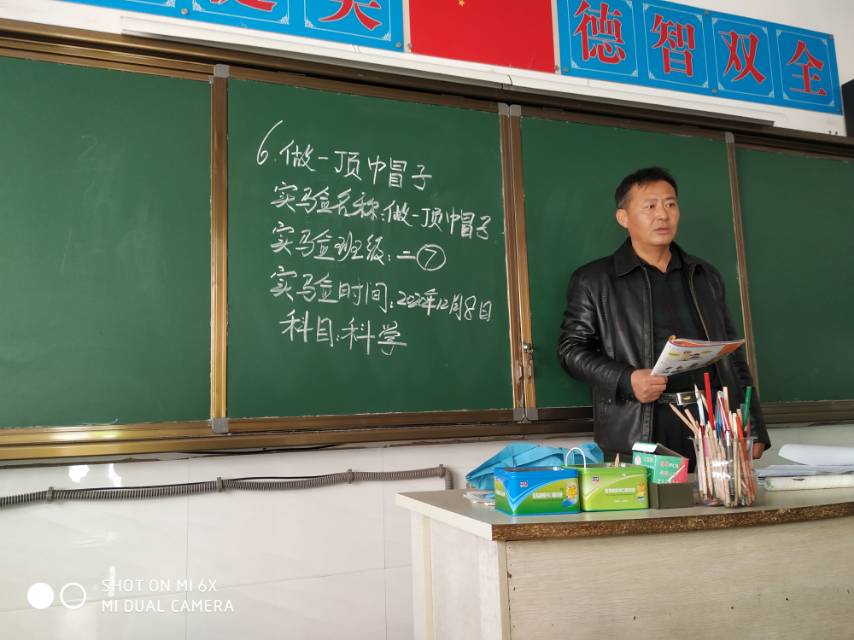 德智双全
6.做一顶巾冒子
实验名称:做一顶巾冒子
实验班级:二⑦
实验时间:2020年12月8日
科目:科学
SHOT ON MI 6X
MI DUAL CAMERA